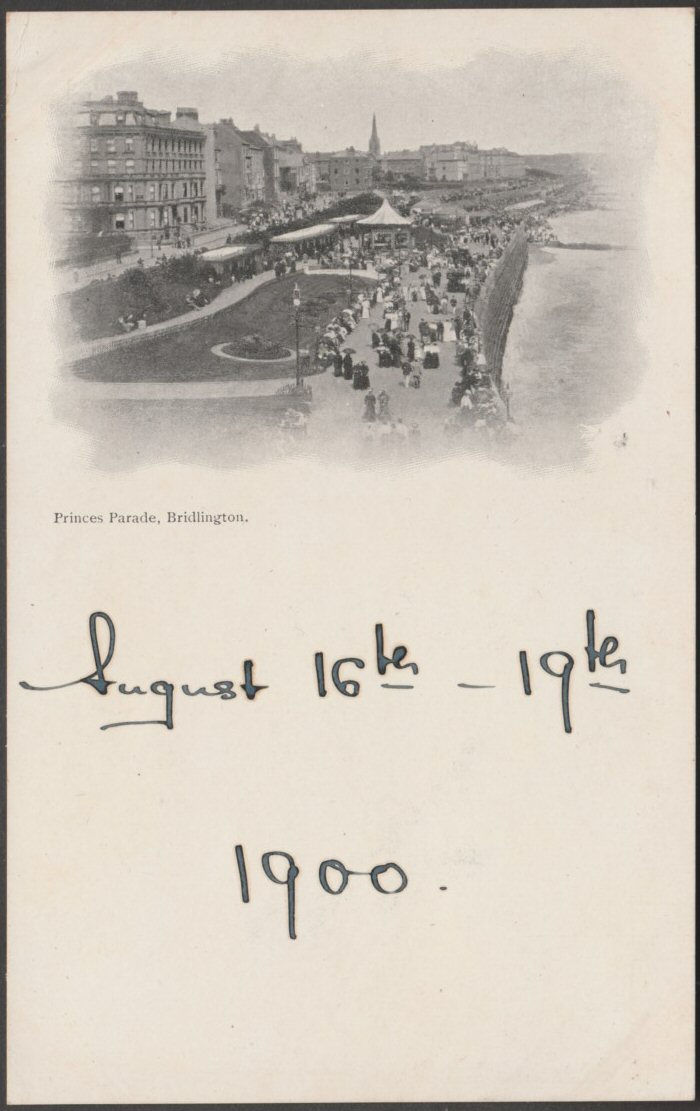 Princes Parade, Bridlington.
August 16th - 19th
1900.